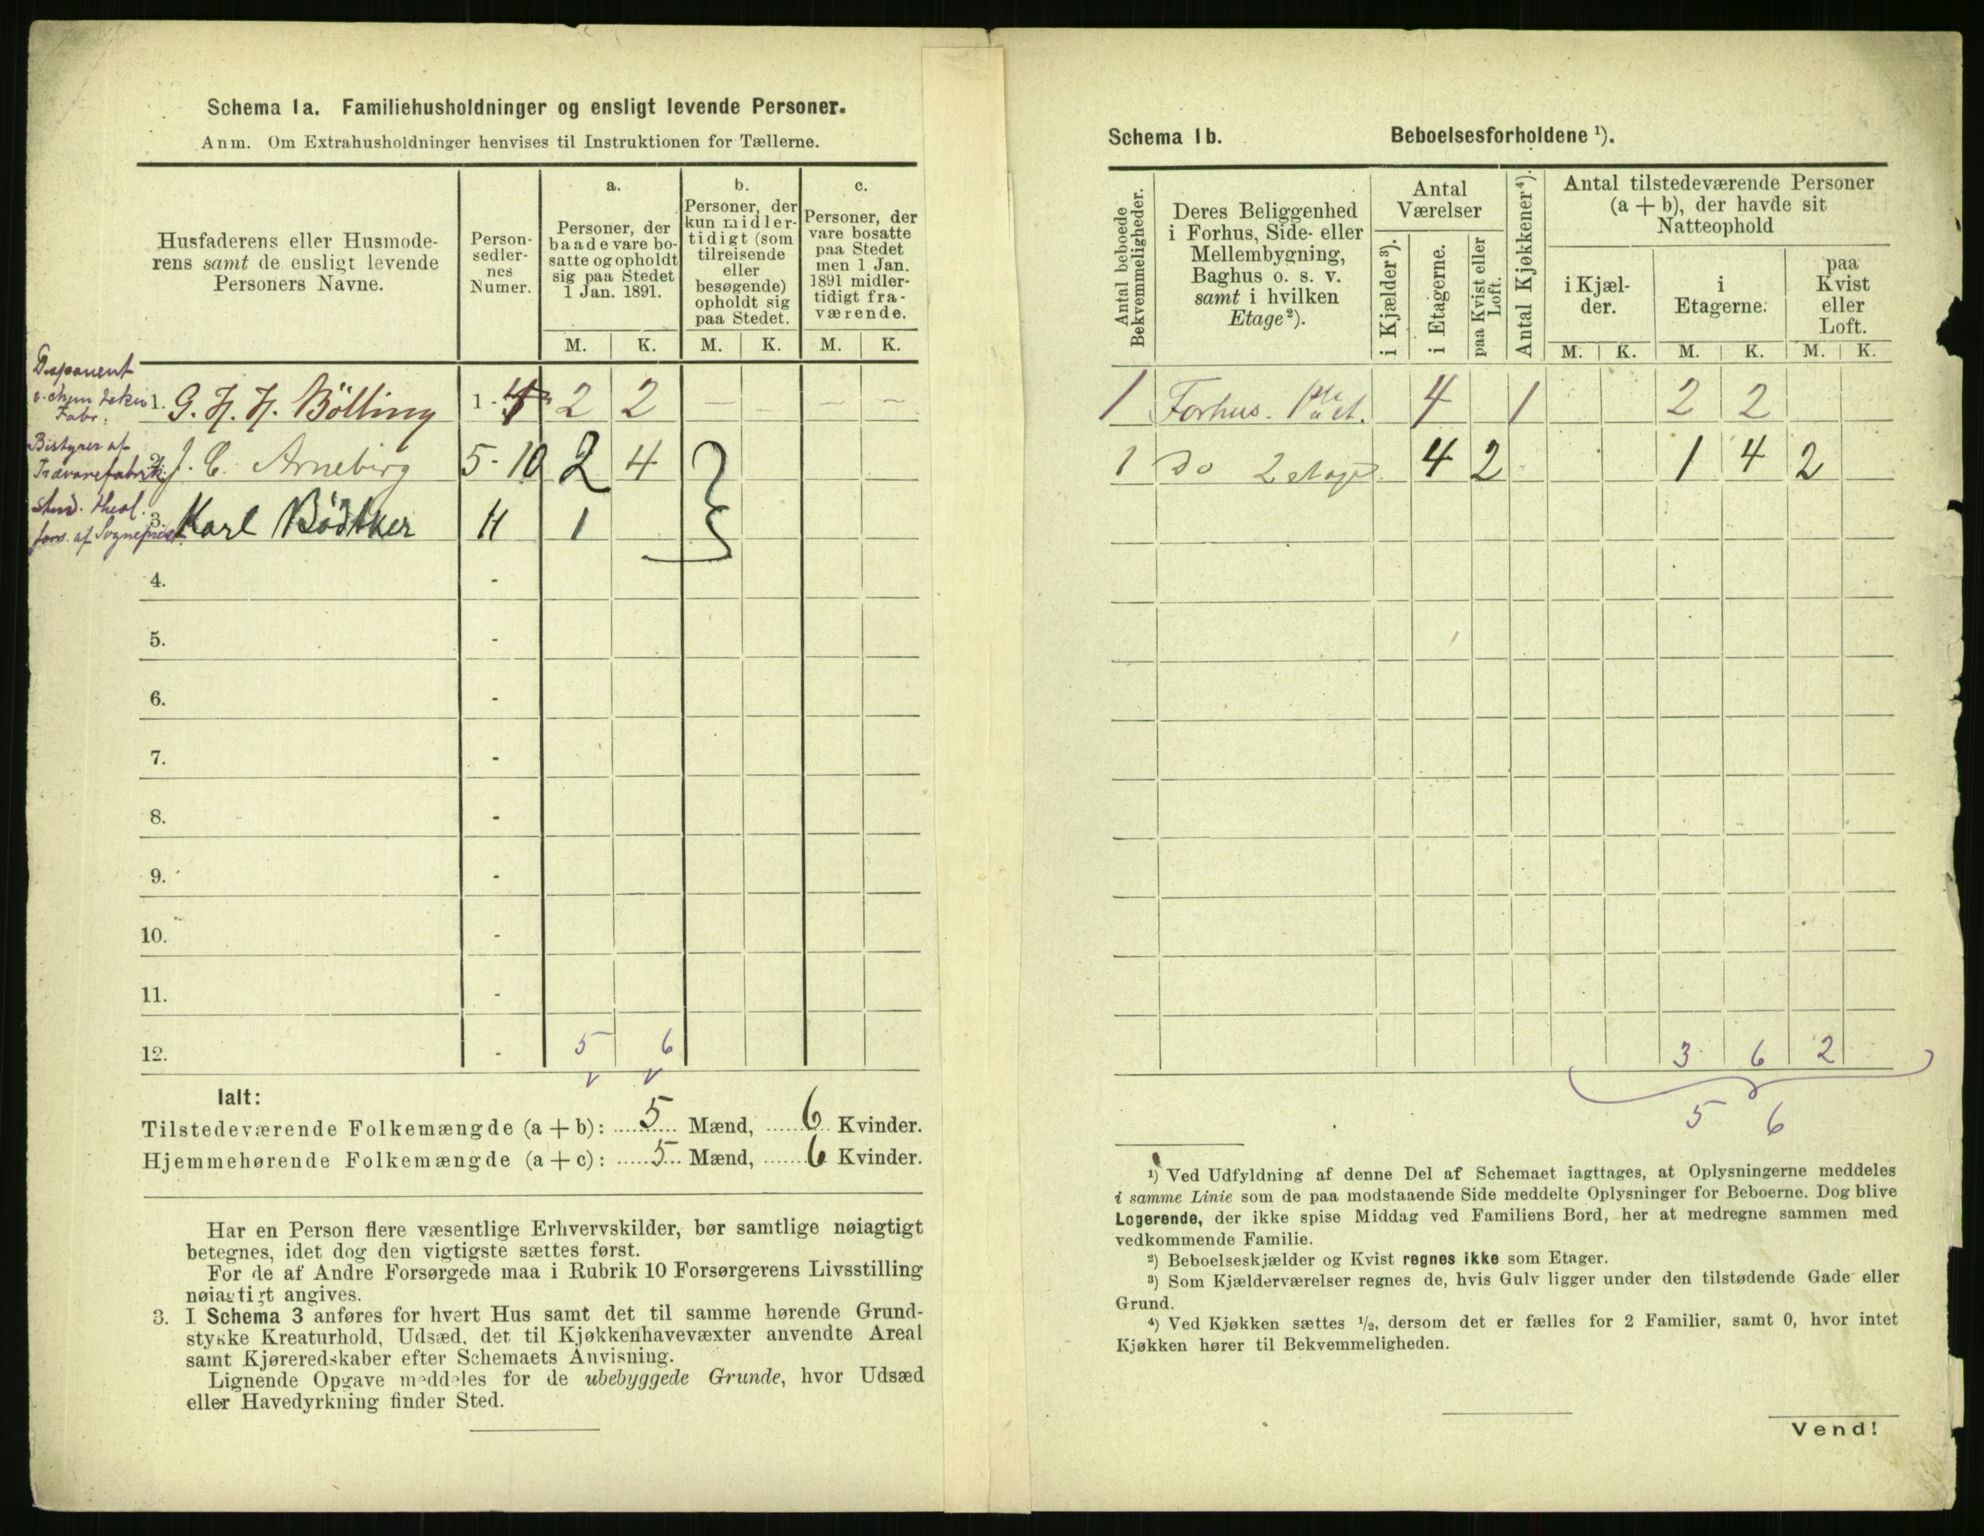 Schema 1a. Familiehusholdninger og ensligt levende Personer.
Anm. Om Extrahusholdninger henvises til Instruktionen for Tællerne.
Husfaderens eller Husmode-
rens samt de ensligt levende
Personers Navne.
Person-
sedler-
nes
Numer.
a.
Personer, der
baade vare bo-
satte og opholdt
sig paa Stedet
1 Jan. 1891.
b.
Personer, der
kun midler-
tidigt (som
tilreisende
eller
besøgende)
opholdt sig
paa Stedet.
c.
Personer, der
vare bosatte
paa Stedet
men 1 Jan.
1891 midler-
tidigt fra-
værende.
M. K. M. K. M. K.
Disponent
v. chem. 
Fabr:
1. G. H. H. Bölling 1-4 2 2 — — — ~
Bistyrer af
Trævarefabrik
2. J. C. Arneberg 5-10 2 4
stud. theol.
fors. af Sognepræst
3. Karl Bödtker 11 1
4. -
5. -
6. -
7. -
8. -
9. -
10. -
11. -
12. - 5 6
Ialt:
Tilstedeværende Folkemængde (a + b): 5 Mænd, 6 Kvinder.
Hjemmehørende Folkemængde (a + c): 5 Mænd, 6 Kvinder.
Har en Person flere væsentlige Erhvervskilder, bør samtlige nøiagtigt
betegnes, idet dog den vigtigste sættes først.
For de af Andre Forsørgede maa i Rubrik 10 Forsørgerens Livsstilling
nøiagtigt angives.
3. I Schema 3 anføres for hvert Hus samt det til samme hørende Grund-
stykke Kreaturhold, Udsæd, det til Kjøkkenhavevæxter anvendte Areal
samt Kjøreredskaber efter Schemaets Anvisning.
Lignende Opgave meddeles for de ubebyggede Grunde, hvor Udsæd
eller Havedyrkning finder Sted.
Schema 1b. Beboelsesforholdene ¹).
Antal beboede
Bekvemmeligheder.
Deres Beliggenhed
i Forhus, Side- eller
Mellembygning,
Baghus o. s. v.
samt i hvilken
Etage²).
Antal
Værelser
i Kjælder³).
i Etagerne.
paa Kvist eller
Loft.
Antal Kjøkkener⁴).
Antal tilstedeværende Personer
(a + b), der havde sit
Natteophold
i Kjæl-
der.
i
Etagerne.
paa
Kvist
eller
Loft.
M. K. M. K. M. K.
1 Forhus. 1ste et. 4 1 2 2
1 do 2 etage. 4 2 1 4 2
3 6 2
5 6
¹) Ved Udfyldning af denne Del af Schemaet iagttages, at Oplysningerne meddeles
i samme Linie som de paa modstaaende Side meddelte Oplysninger for Beboerne. Dog blive
Logerende, der ikke spise Middag ved Familiens Bord, her at medregne sammen med
vedkommende Familie.
²) Beboelseskjælder og Kvist regnes ikke som Etager.
³) Som Kjælderværelser regnes de, hvis Gulv ligger under den tilstødende Gade eller
Grund.
⁴) Ved Kjøkken sættes ½, dersom det er fælles for 2 Familier, samt 0, hvor intet
Kjøkken hører til Bekvemmeligheden.
Vend!